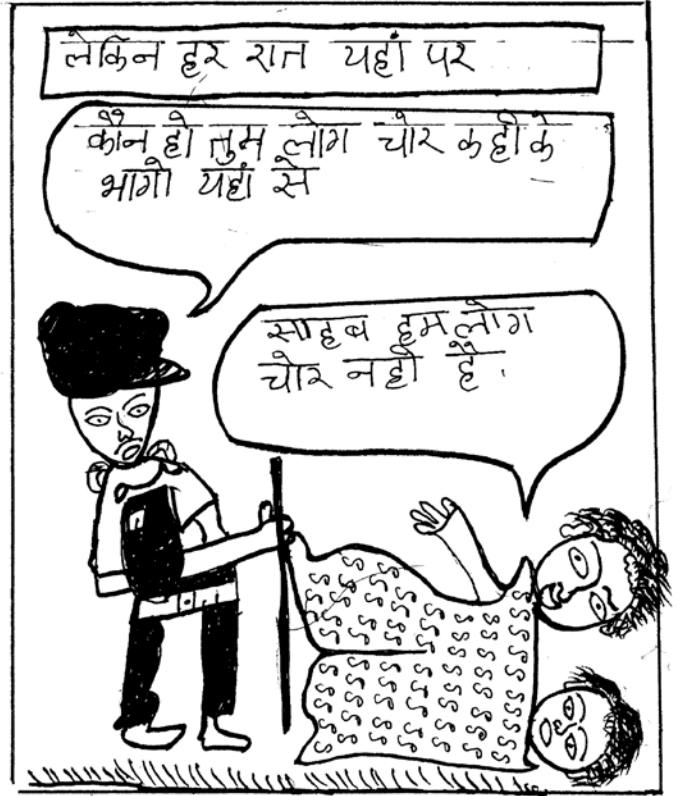 लेकिन हर रात यहां पर
कौन हो तुम लोग चोर कहीं के
भागो यहां से
साहब हम लोग
चोर नही है.